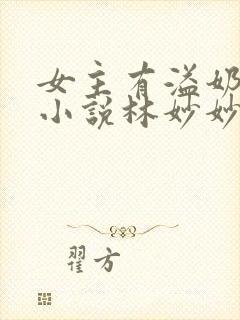 女主有溢奶
小说林妙妙
翟方